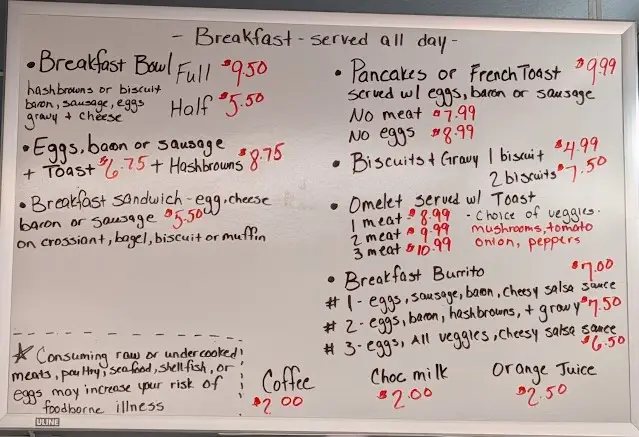 - Breakfast - served all day -
• Breakfast Bowl Full $9.50
hashbrowns or biscuit
bacon, sausage, eggs Half $5.50
gravy + cheese
• Eggs, bacon or sausage
+ Toast $6.75 + Hashbrowns $8.75
• Breakfast sandwich - egg, cheese
bacon or sausage $5.50
on crossiant, bagel, biscuit or muffin
• Pancakes or French Toast $9.99
served w/ eggs, bacon or sausage
No meat $7.99
No eggs $8.99
• Biscuits + Gravy 1 biscuit $4.99
2 biscuits $7.50
• Omelet served w/ Toast
1 meat - $8.99 - Choice of veggies -
2 meat $9.99 mushrooms, tomato
3 meat $10.99 onion, peppers
• Breakfast Burrito $7.00
# 1 - eggs, sausage, bacon, cheesy salsa sauce
# 2 - eggs, bacon, hashbrowns, + gravy $7.50
# 3 - eggs, All veggies, cheesy salsa sauce
$6.50
* Consuming raw or undercooked
meats, poultry, seafood, shellfish, or
eggs may increase your risk of
foodborne illness
Coffee Choc milk Orange Juice
$2.00 $2.00 $2.50
ULINE